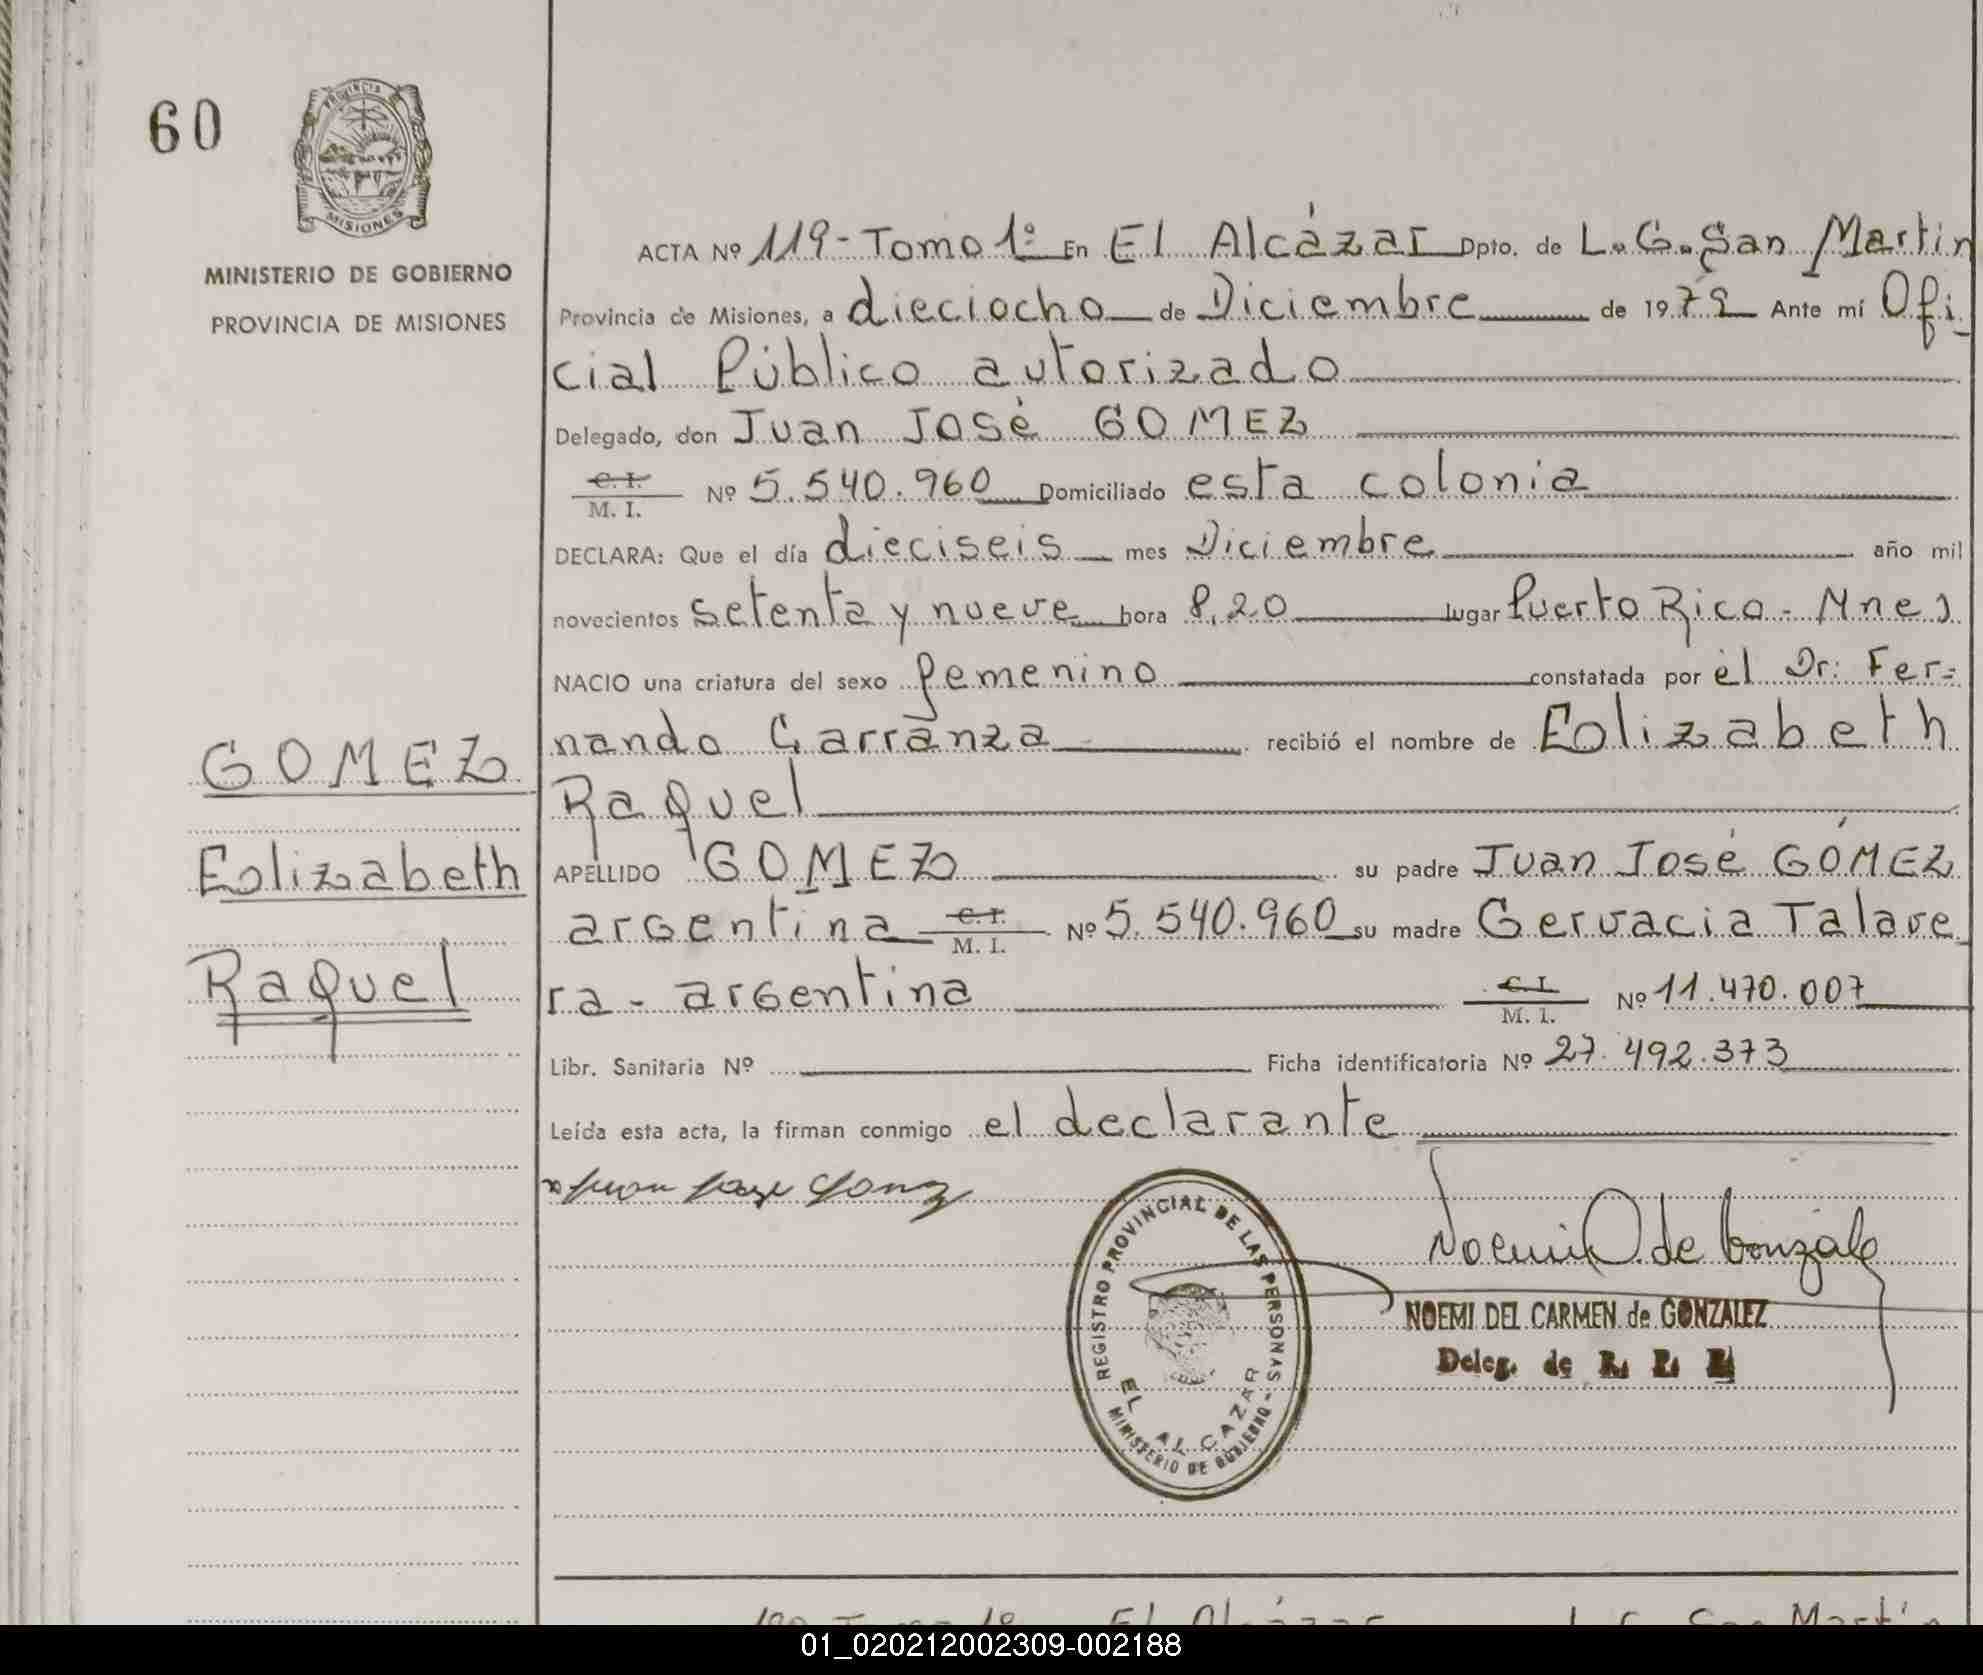 60
PROVINCIA
MISIONES
MINISTERIO DE GOBIERNO
PROVINCIA DE MISIONES
ACTA Nº 119 - Tomo 1º En El Alcázar Dpto. de L. G. San Martin
Provincia de Misiones, a dieciocho de Diciembre de 1979 Ante mí Ofi-
cial Público autorizado
Delegado, don Juan José GOMEZ
C. I.
M. I. Nº 5.540.960 Domiciliado esta colonia
DECLARA: Que el día dieciseis mes Diciembre año mil
novecientos setenta y nueve hora 8,20 lugar Puerto Rico - Mnes
NACIO una criatura del sexo femenino constatada por él Dr: Fer-
nando Carranza recibió el nombre de Eolizabeth
Raquel
APELLIDO GOMEZ su padre Juan José GÓMEZ
argentina C. I. M. I. Nº 5.540.960 su madre Gervacia Talave
ra - argentina C. I. M. I. Nº 11.470.007
Libr. Sanitaria Nº Ficha identificatoria Nº 27.492.373
Leída esta acta, la firman conmigo el declarante
GOMEZ
Eolizabeth
Raquel
Juan Jose Gomez
Noemi C. de Gonzalez
REGISTRO PROVINCIAL DE LAS PERSONAS
EL ALCAZAR
MINISTERIO DE GOBIERNO
NOEMI DEL CARMEN de GONZALEZ
Deleg. de R. P. P.
120 Tomo 1º El Alcázar L. G. San Martín
01_020212002309-002188